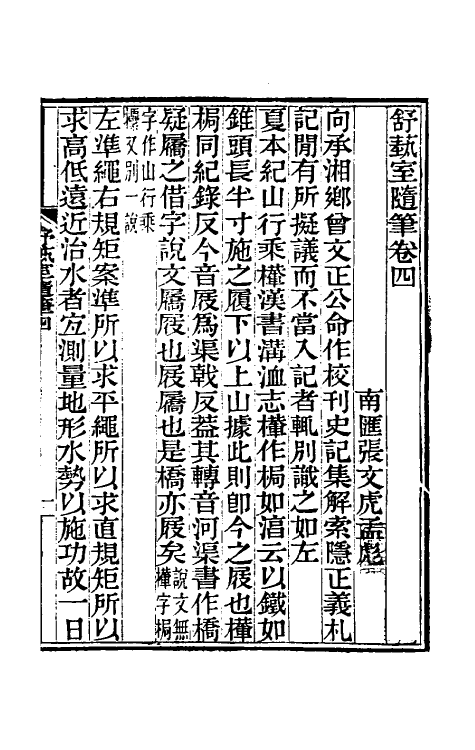 舒藝室隨筆卷四
南匯張文虎孟彪
向承湘鄉曾文正公命作校刊史記集解索隱正義札
記閒有所擬議而不當入記者輒別識之如左
夏本紀山行乘檋漢書溝洫志檋作梮如湻云以鐵如
錐頭長半寸施之履下以上山據此則卽今之屐也檋
梮同紀錄反今音屐爲渠戟反葢其轉音河渠書作橋
疑屩之借字說文屩屐也屐屩也是橋亦屐矣說文無檋字梮
字作山行乘
欙又別一說
左準繩右規矩案準所以求平繩所以求直規矩所以
求高低遠近治水者宐測量地形水勢以施功故一日
舒藝室隨筆四
一